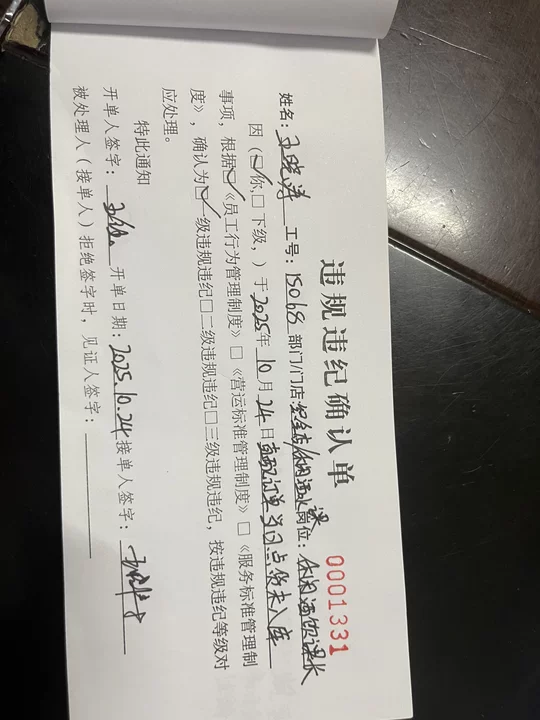 违规违纪确认单
0001331
姓名：王晓涛 工号：15068 部门/门店：金店/休闲酒水课 岗位：休闲酒饮课长
因（☑你，□下级，）于2025年10月24日直配订单当日点货未入库
事项，根据☑《员工行为管理制度》□《营运标准管理制度》□《服务标准管理制
度》，确认为☑一级违规违纪□二级违规违纪□三级违规违纪，按违规违纪等级对
应处理。
特此通知
开单人签字： 开单日期：2025.10.24 接单人签字：
被处理人（接单人）拒绝签字时，见证人签字：